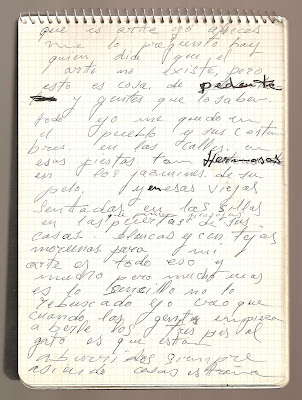 que es arte yo a veces
me lo pregunto hay
quien dice que el
arte no existe, pero
esto es cosa. de pedante
y gentes que lo saben.
todo yo me quedo en
el pueblo y sus costum
bres. en las calles. en
esas fiestas tan Hermosas
en los jazmines de su
pelo, y en esas viejas
Sentadas en las sillas
en las puertas de sus
casas. blancas y con tejas
morunas para mi
arte es todo eso y
mucho pero mucho mas
es lo sencillo no lo
rebuscado yo creo que
cuando las gentes empiezan
a berle los tres pies al
gato es que estan
aburridos siempre
asiendo cosas